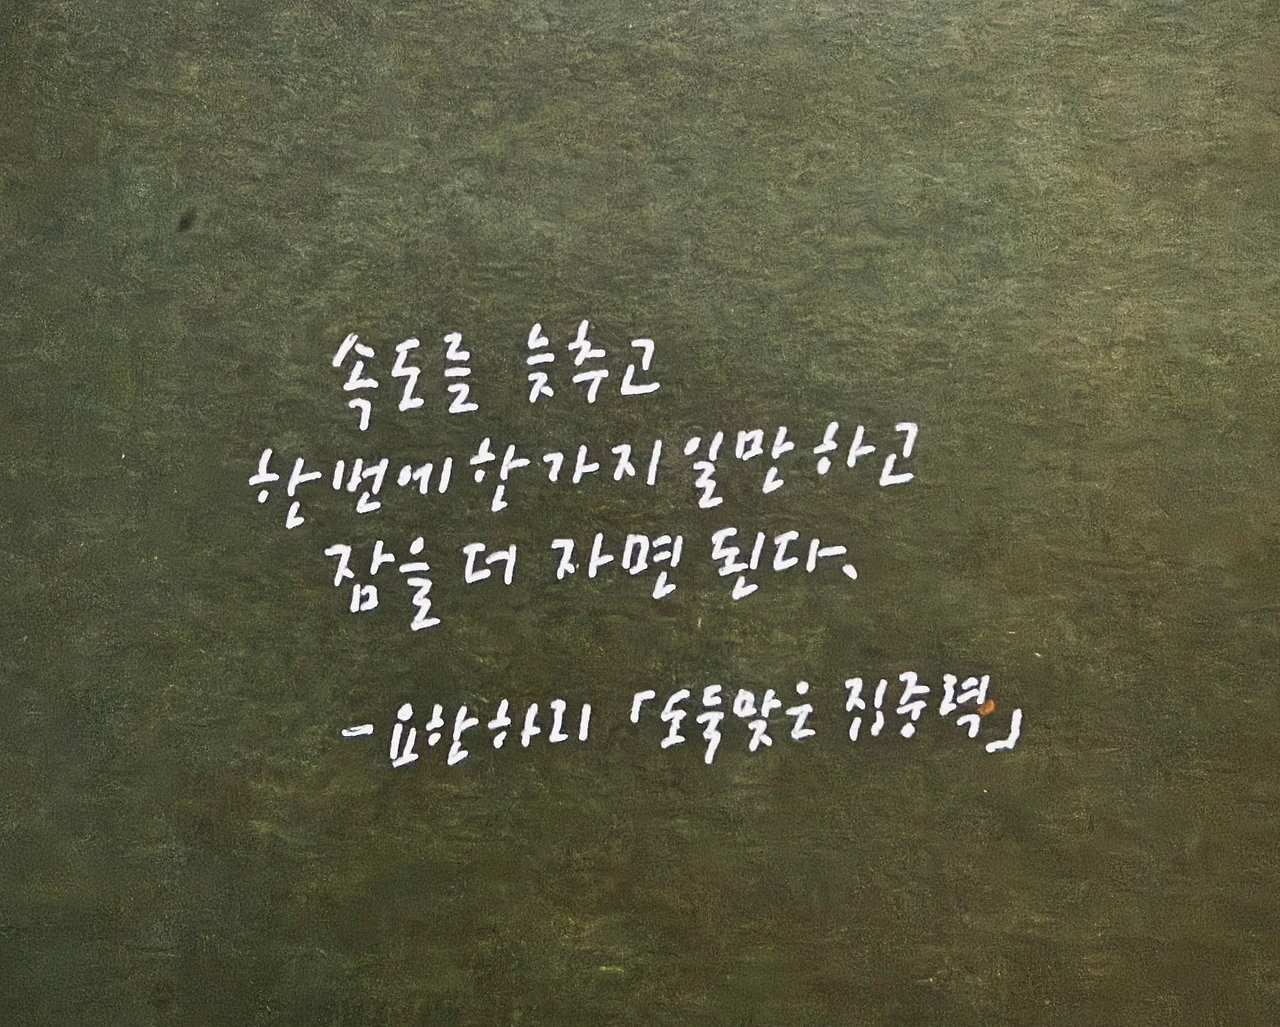 속도를 늦추고
한번에 한가지 일만 하고
잠을 더 자면 된다.
- 요한 하리 「도둑맞은 집중력」